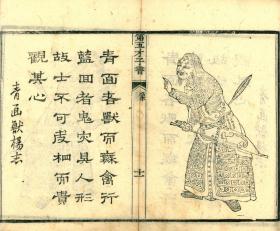 第五才子書
十一
青面者獸而無禽行
藍面者鬼具人形
故士不可皮相而貴
觀其心
青面獸楊志